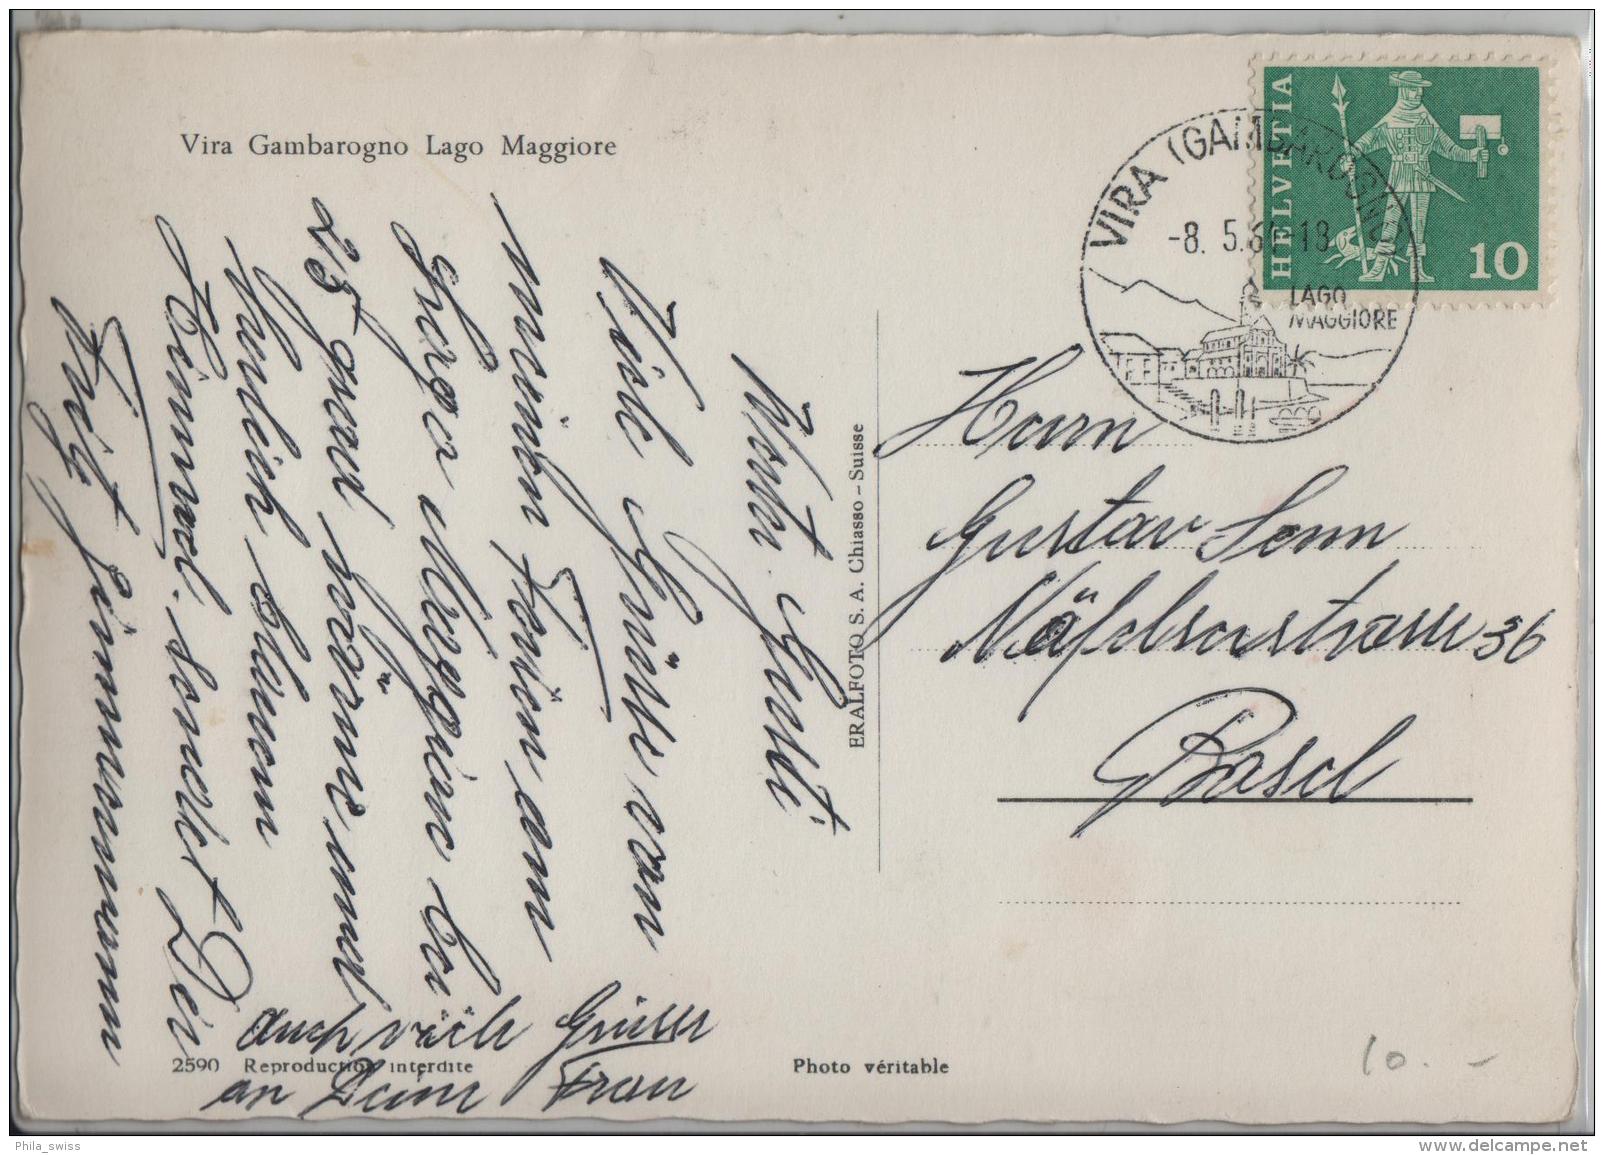 Vira Gambarogno Lago Maggiore
HELVETIA
10
VIRA (GAMBAROGNO)
-8. 5.6 -18
LAGO
MAGGIORE
Werter Gusti
Viele Grüsse von
meinen Ferien am
Lago Maggiore bei
25 grad Wärme und
herlich blauem
Himmel. sendet Dir
Fritz Zimmermann
auch viele Grüsse
an Deine Frau
ERALFOTO S. A. Chiasso - Suisse
Herrn
Gustav Senn
Näfelserstrasse 36
Basel
2590 Reproduction interdite
Photo véritable
10.-
Phila_swiss
delcampe.net